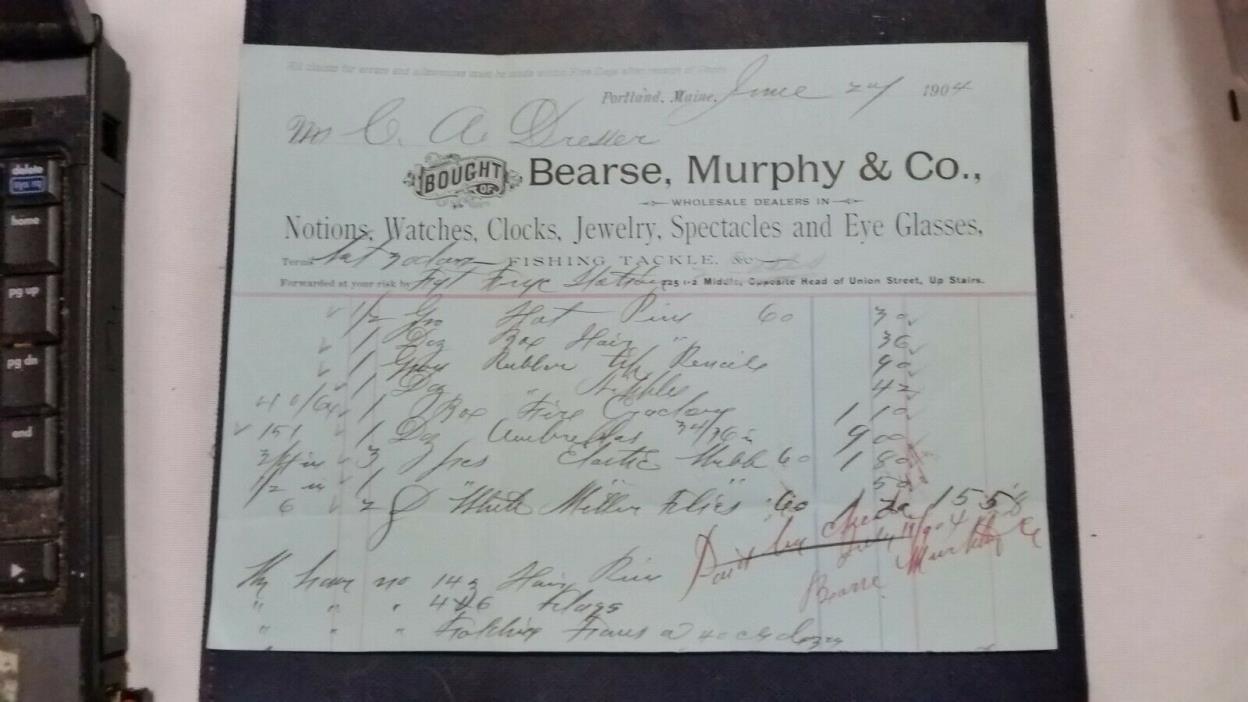 All claims for errors and allowances must be made within Five Days after receipt of Goods
Portland, Maine, June 24 1904
Mr C. A. Dresser
BOUGHT OF Bearse, Murphy & Co.,
WHOLESALE DEALERS IN
Notions, Watches, Clocks, Jewelry, Spectacles and Eye Glasses,
Terms FISHING TACKLE, &c.
Forwarded at your risk by 1-2 Middle, Opposite Head of Union Street, Up Stairs.
1/2 Gro Hat Pins 60 30
1 Doz Box Hair " 36
1 Gross Rubber tip Pencils 90
1 Doz " Nipples 42
1 Box Fire 1 10
151 1 Doz Umbrellas 9 00
3 pcs Elastic Webb 60 1 80
1/2 in 1 50
6 2 "White Miller Flies" 60 1 20 15 58
Paid by July 11/904
Bearse Murphy & Co
We have no 143 Hair Pins
" " " Flags
" " " 
delete
home
pg up
pg dn
end